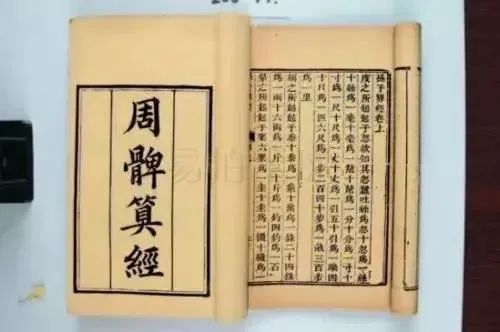 周髀算經
孫子算經卷上
度之所起起于忽欲知其忽蠶吐絲爲忽十忽爲一絲
十絲爲一毫十毫爲一氂十氂爲一分十分爲一寸十
寸爲一尺十尺爲一丈十丈爲一引五十引爲一端四
十尺爲一匹六尺爲一步二百四十步爲一畝三百步
爲一里
稱之所起起于黍十黍爲一絫十絫爲一銖二十四銖
爲一兩十六兩爲一斤三十斤爲一鈞四鈞爲一石
量之所起起于粟六粟爲一圭十圭爲一撮十撮爲一